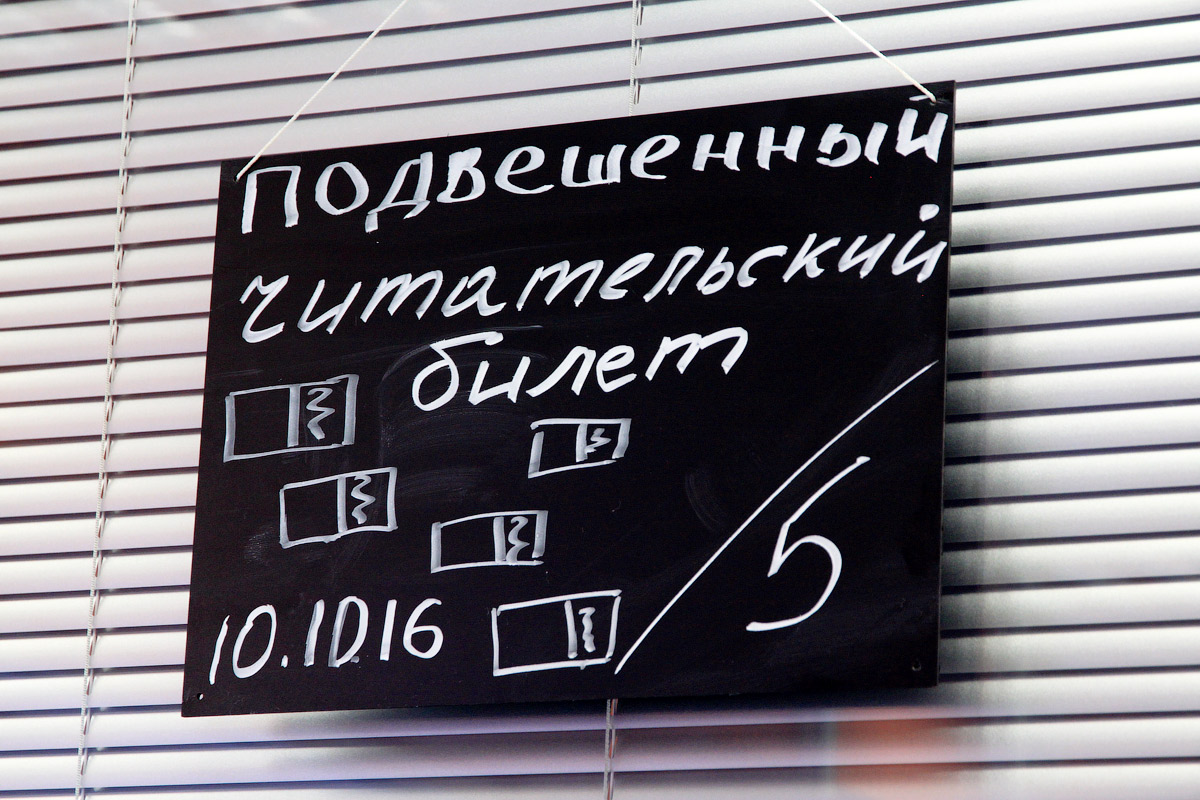 подвешенный
читательский
билет
10.10.16
/5